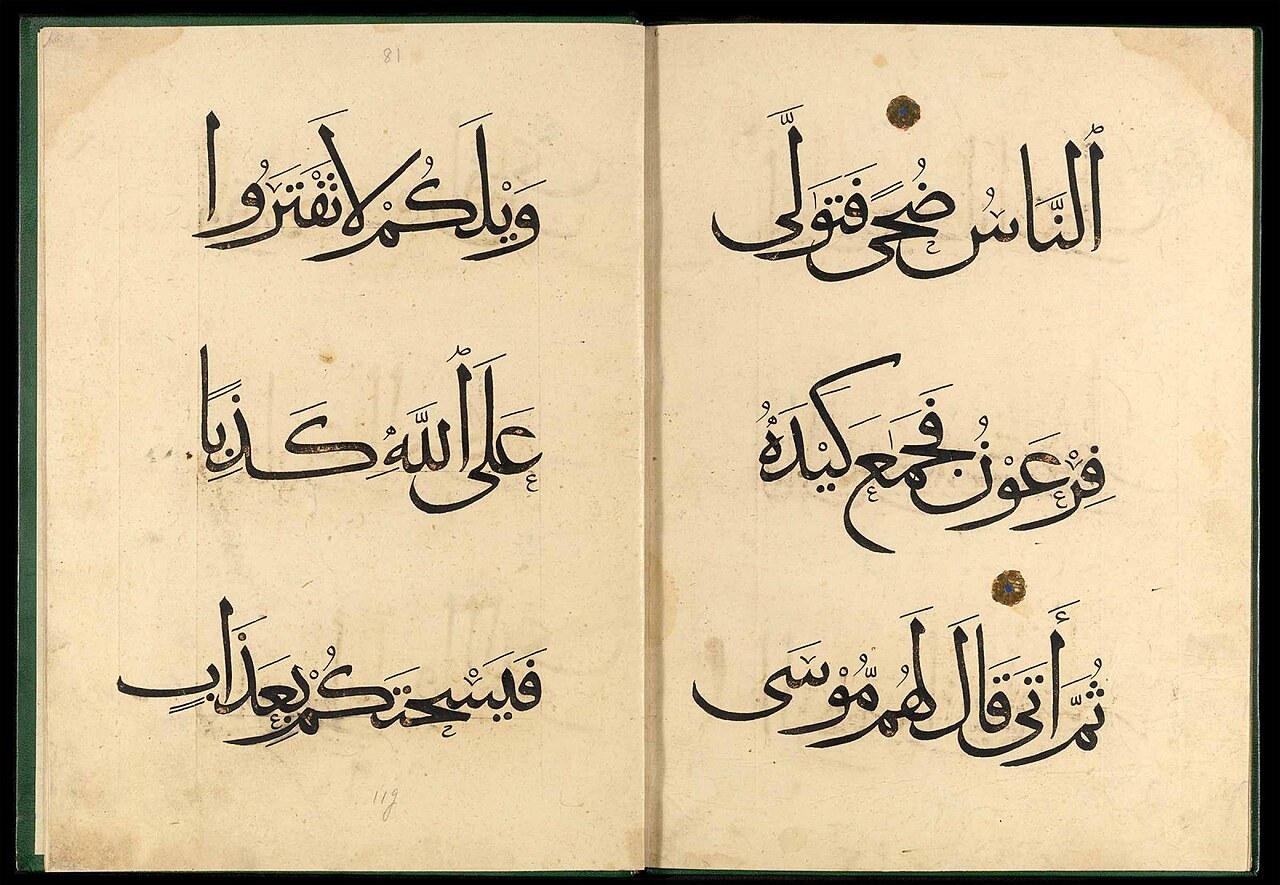 ٱلنَّاسُ ضُحًى فَتَوَلَّى
فِرْعَوْنُ فَجَمَعَ كَيْدَهُ
ثُمَّ أَتَىٰ قَالَ لَهُم مُّوسَى
81
وَيْلَكُمْ لَا تَفْتَرُوا
عَلَى ٱللَّهِ كَذِبًا
فَيَسْحَتَكُمْ بِعَذَابٍ
119